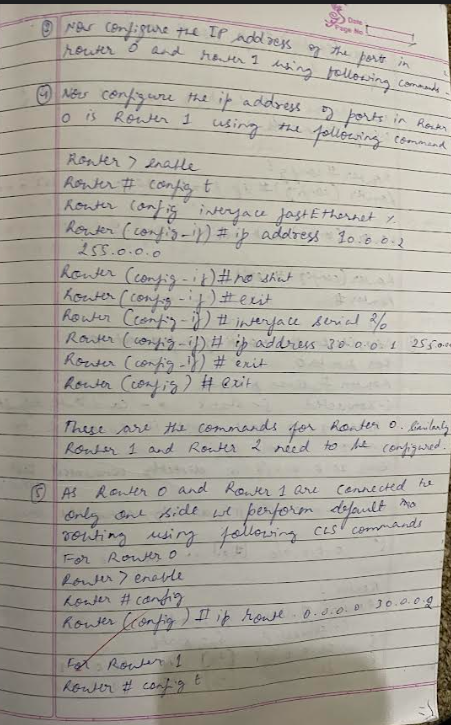 Date
Page No
③ Now configure the IP address of the ports in
router 0 and router 1 using following commands.
④ Now configure the ip address of ports in Router
0 is Router 1 using the following command
Router > enable
Router # config t
Router config interface fastEthernet
Router (config-if) # ip address 10.0.0.2
255.0.0.0
Router (config-if) # no shut
Router (config-if) # exit
Router (config-if) # interface serial 2/0
Router (config-if) # ip address 30.0.0.1 255.0.
Router (config-if) # exit
Router (config) # exit
These are the commands for Router 0. Similarly
Router 1 and Router 2 need to be configured.
⑤ As Router 0 and Router 1 are connected to
only one side we perform default
routing using following CLS commands
For Router 0
Router > enable
Router # config
Router (config) # ip route 0.0.0.0 30.0.0.2
For Router 1
Router # config t